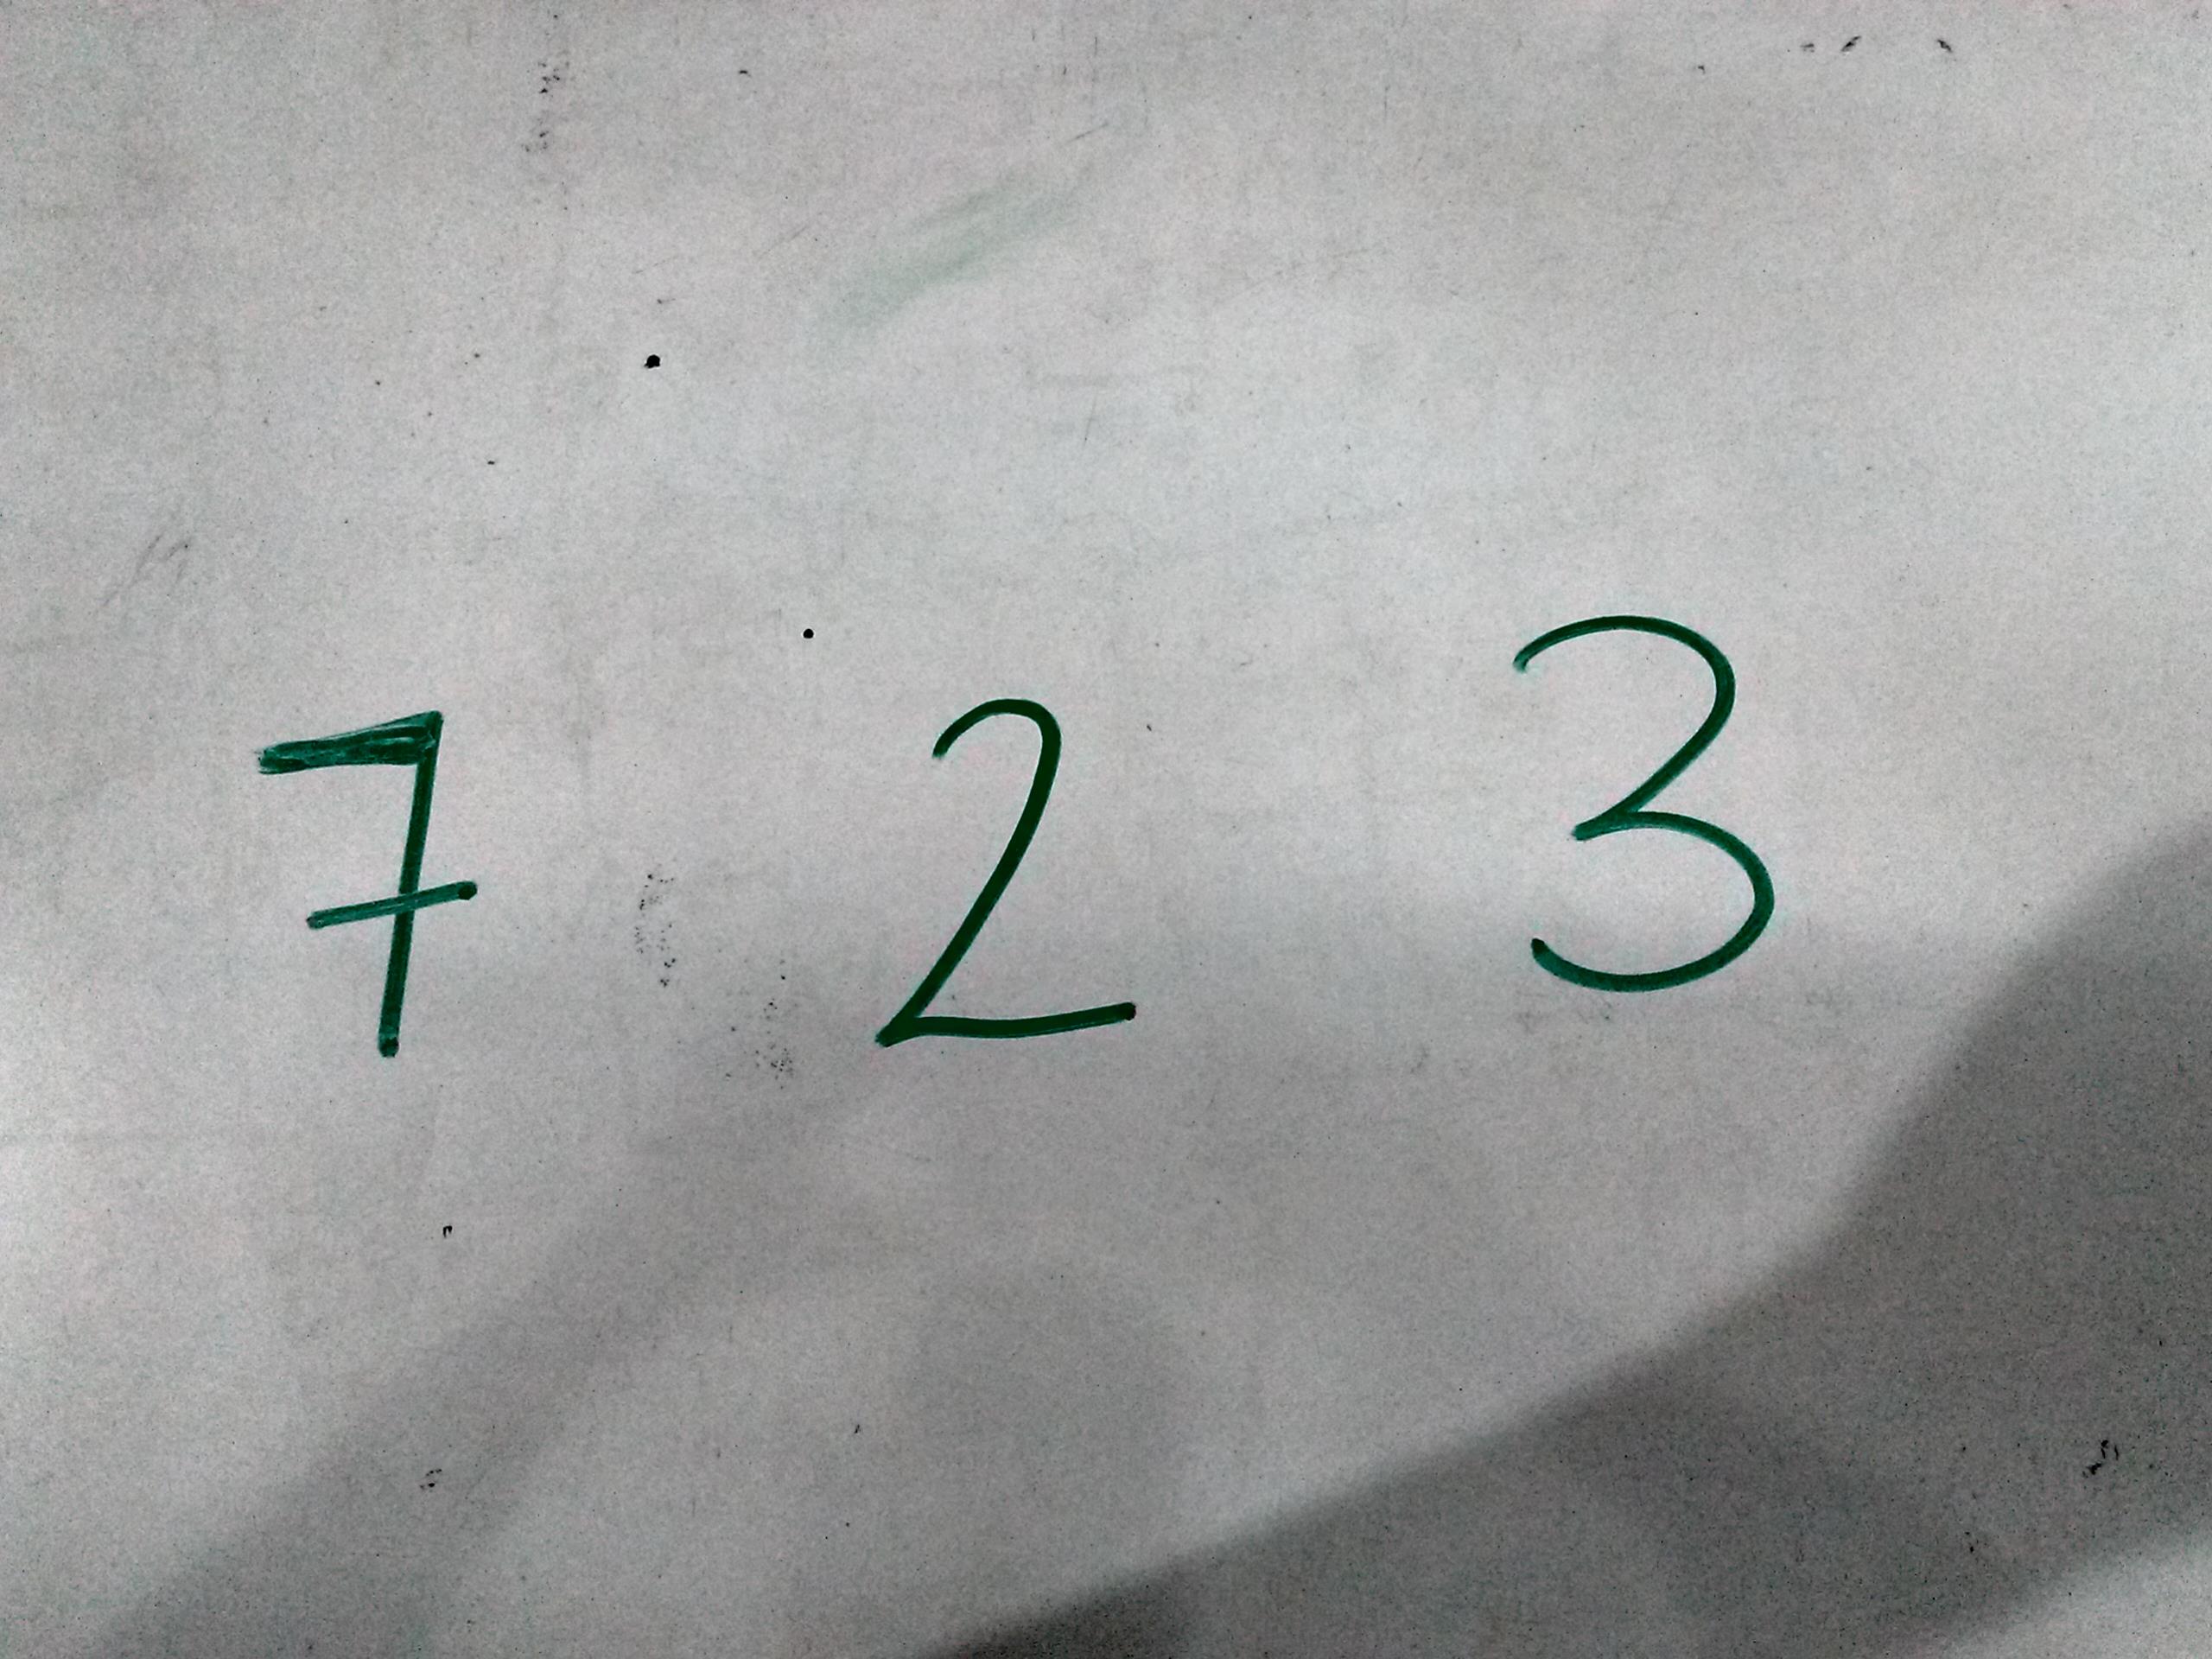 7 2 3